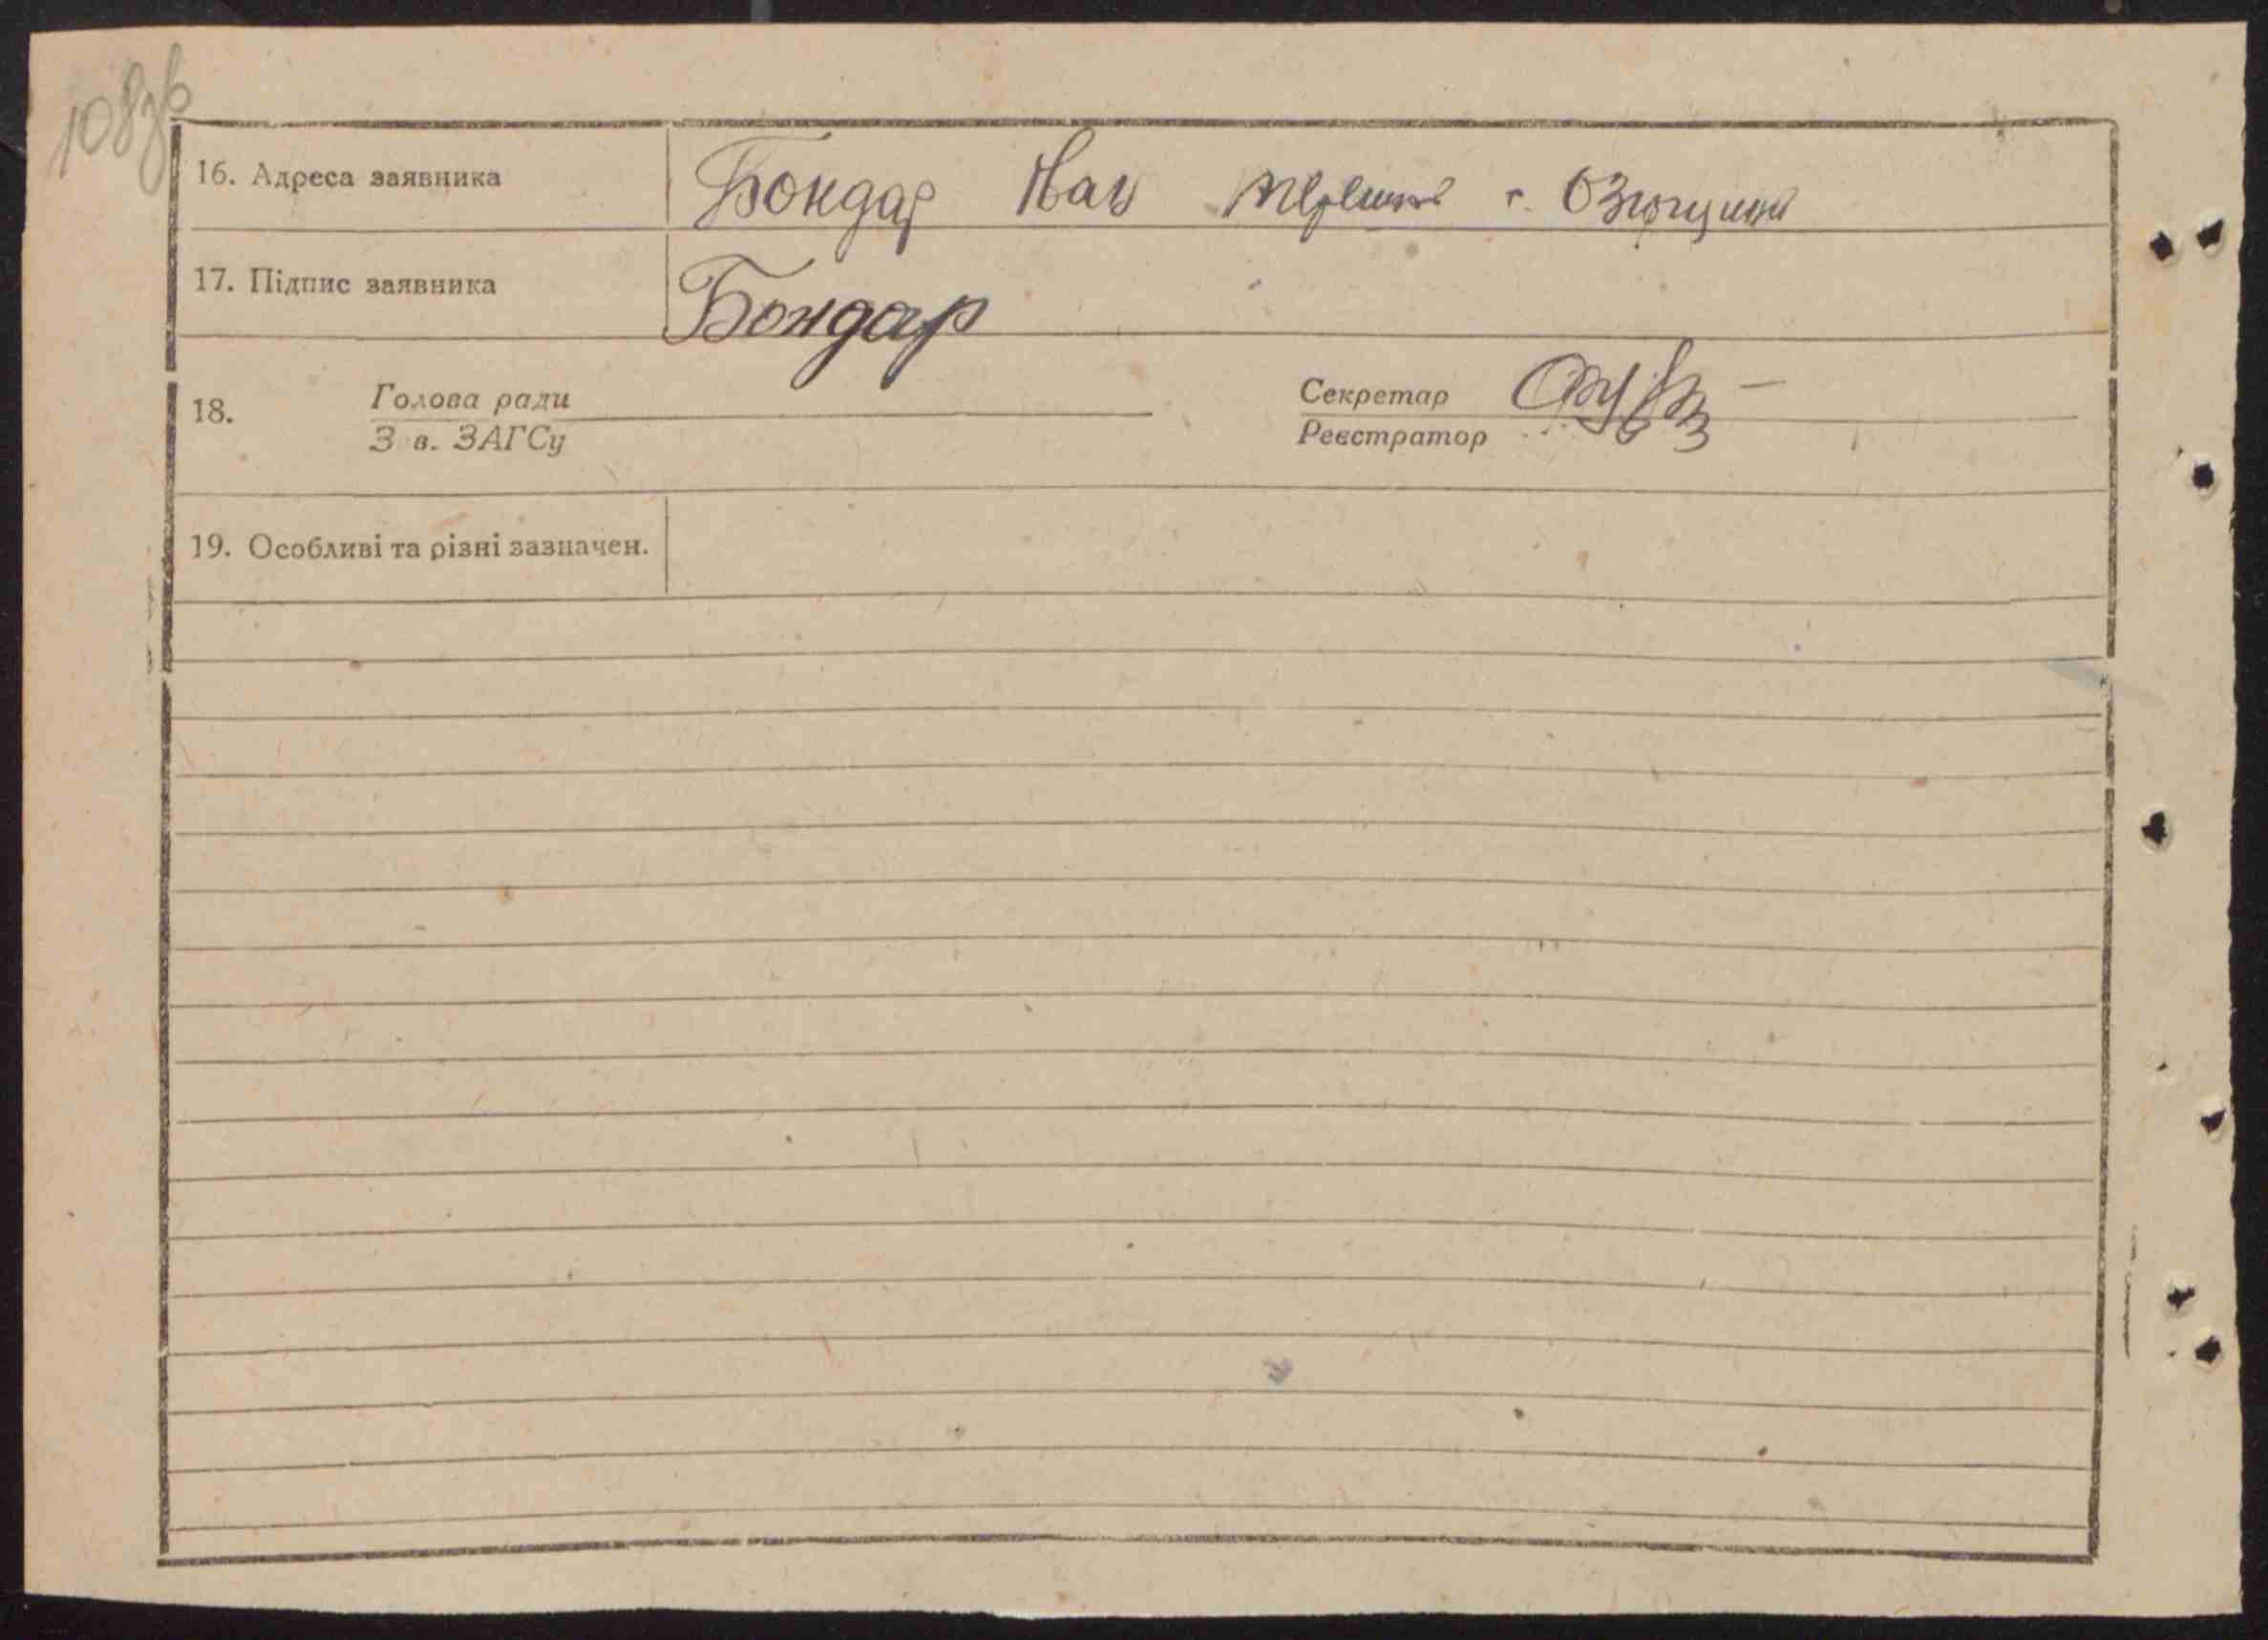 108зв
16. Адреса заявника Бондар Іван с. Озірщина
17. Підпис заявника Бондар
18. Голова ради Секретар
З в. ЗАГСу Реєстратор
19. Особливі та різні зазначен.